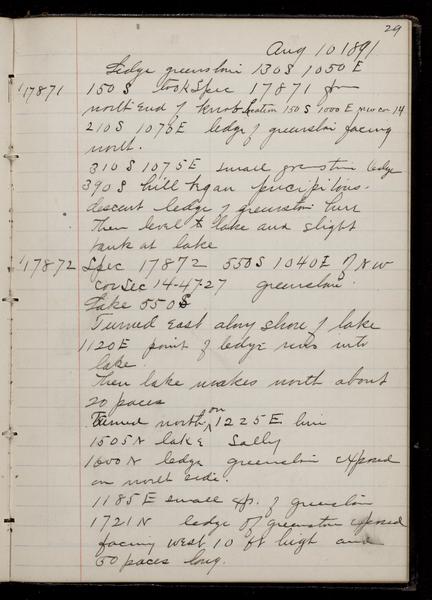 29
Aug 10 1891
Ledge greenstone 130 S 1050 E
17871 150 S took Spec 17871 from
north end of knob Location 150 S 1000 E NW cor 14
210 S 1075 E ledge of greenstone facing
north.
310 S 1075 E small greenstone ledge
390 S hill began precipitous
descent ledge of greenstone here
Then level to lake and slight
bank at lake
17872 Spec 17872 550 S 1040 E of NW
cor Sec 14-47-27 greenstone.
Lake 550 S
Turned East along shore of lake
1120 E point of ledge runs into
lake.
Then lake makes north about
20 paces
Turned north on 1225 E line
1505 N lake Sally
1600 N ledge greenstone exposed
on north side.
1185 E small exp. of greenstone
1721 N ledge of greenstone exposed
facing west 10 ft high and
50 paces long.